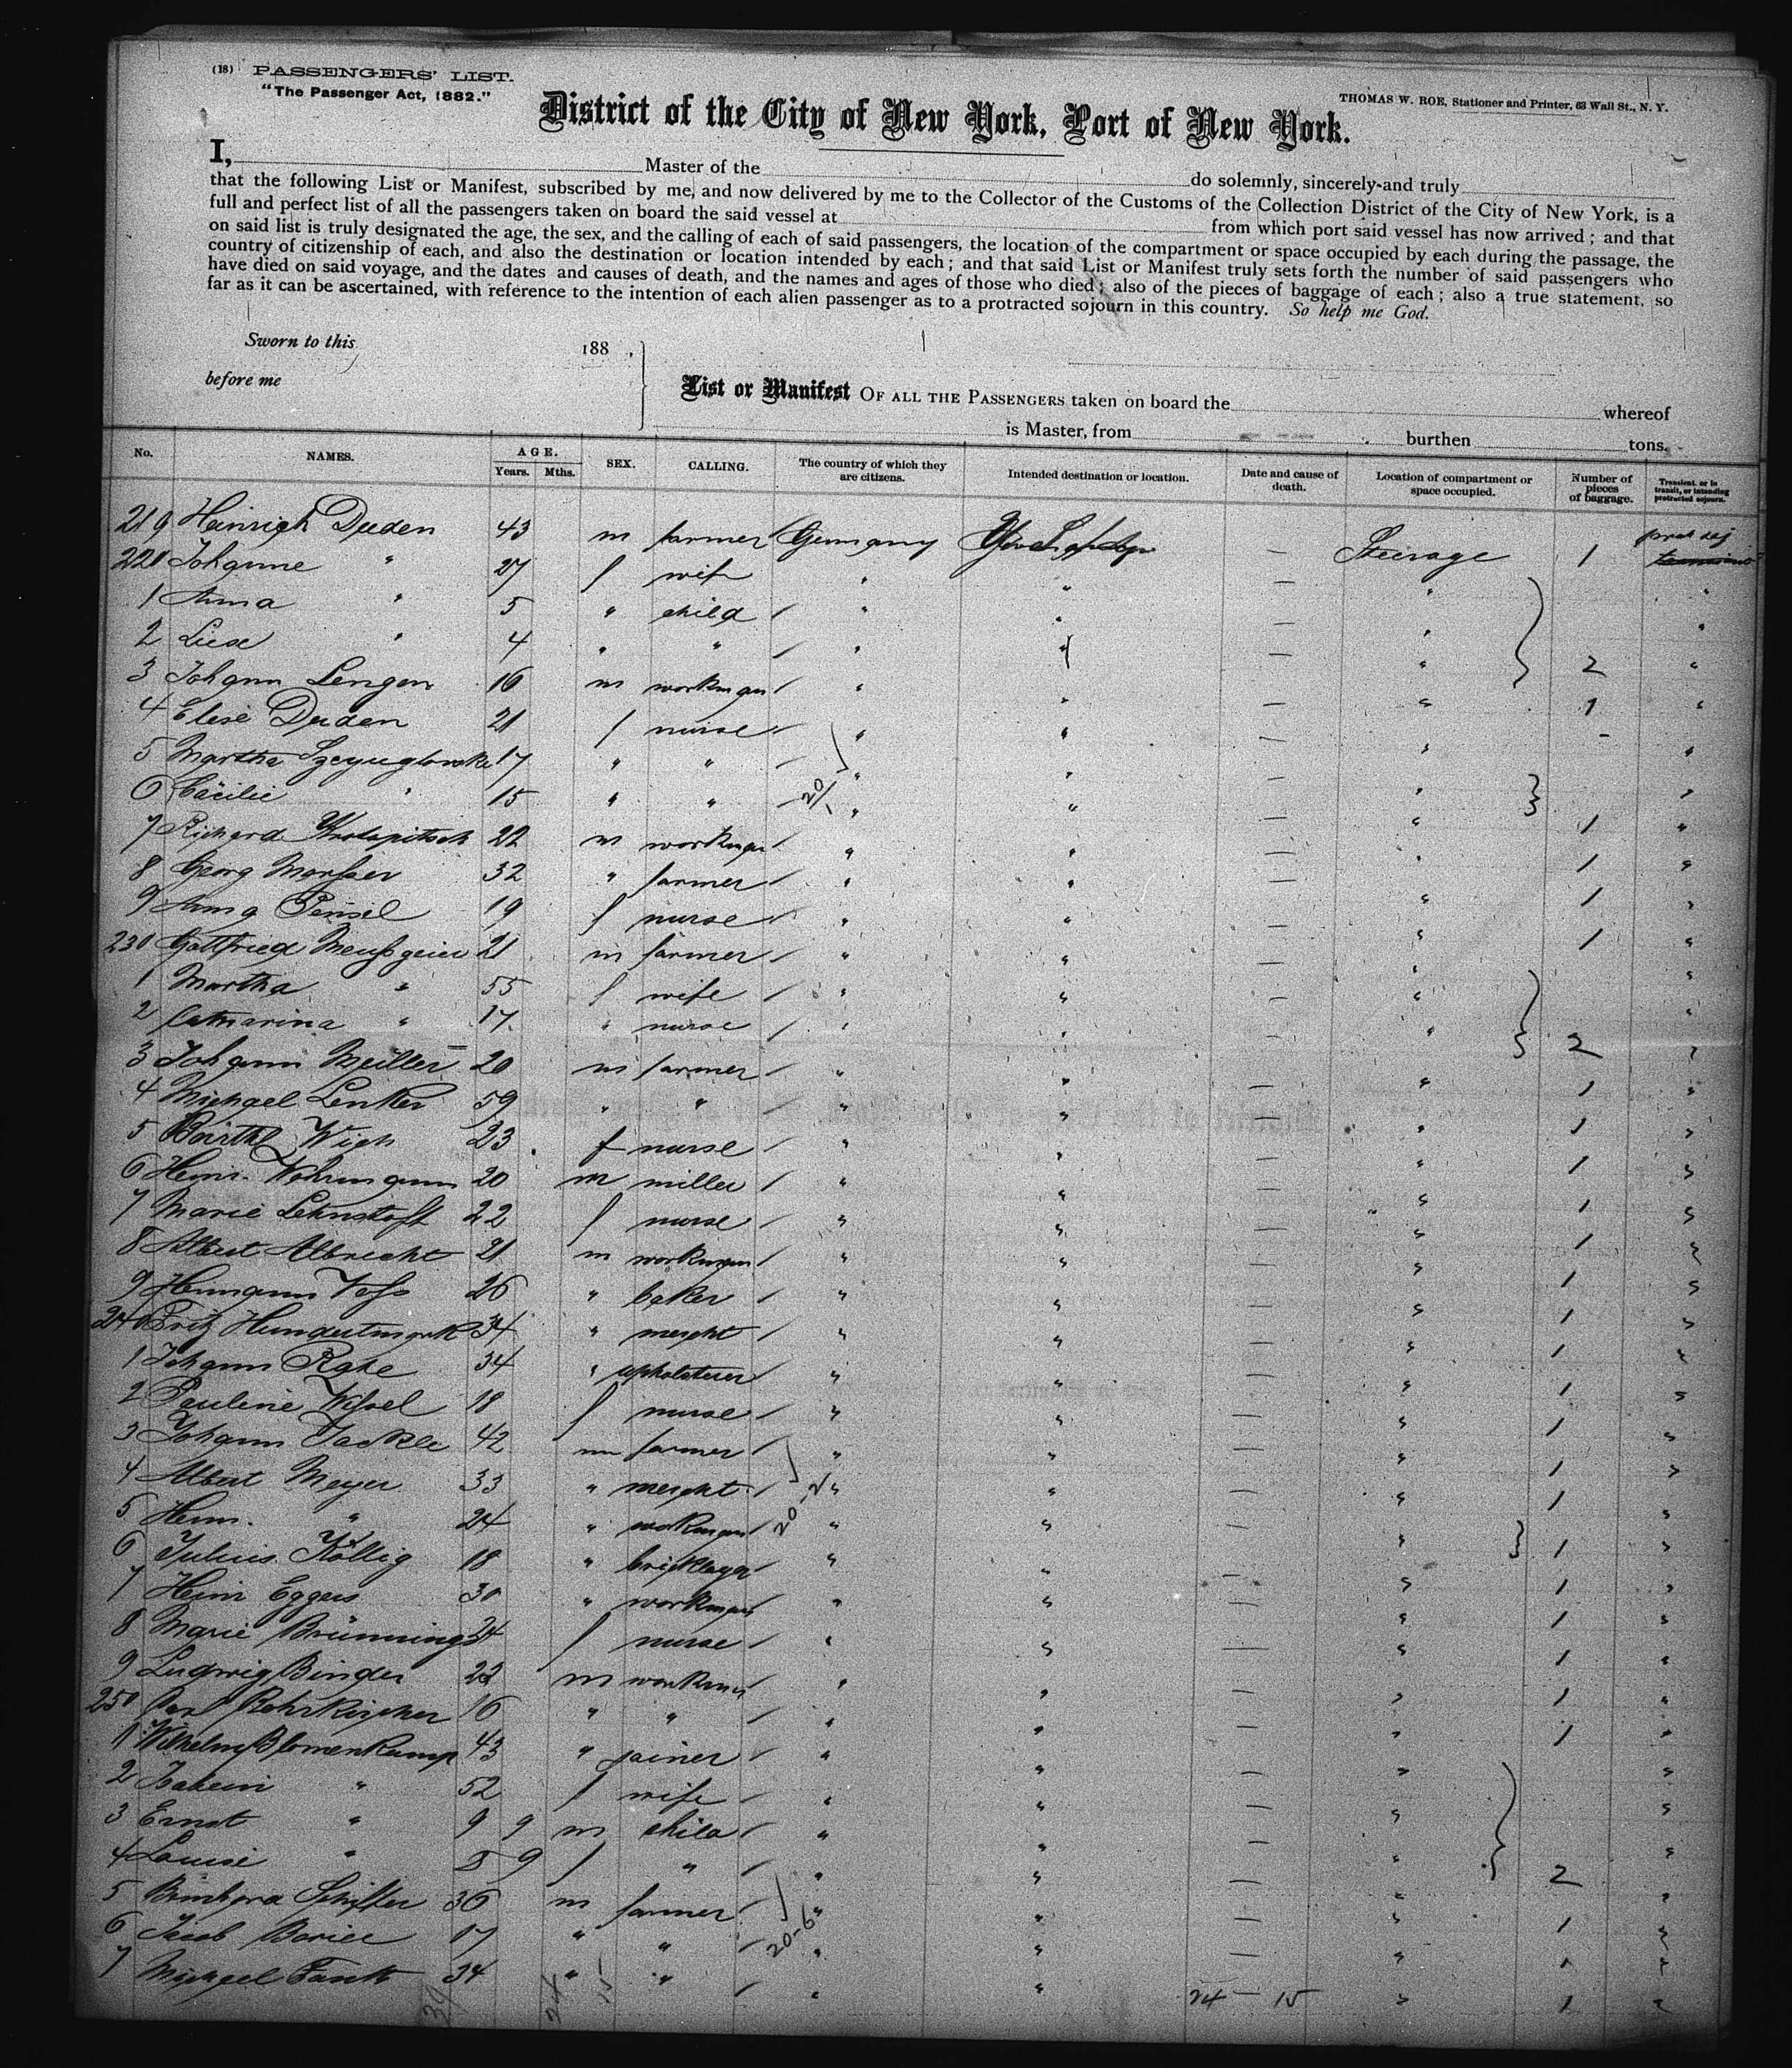 (18) PASSENGERS' LIST.
"The Passenger Act, 1882."
THOMAS W. ROE, Stationer and Printer, 63 Wall St., N. Y.
District of the City of New York, Port of New York.
I, Master of the do solemnly, sincerely and truly
that the following List or Manifest, subscribed by me, and now delivered by me to the Collector of the Customs of the Collection District of the City of New York, is a
full and perfect list of all the passengers taken on board the said vessel at from which port said vessel has now arrived; and that
on said list is truly designated the age, the sex, and the calling of each of said passengers, the location of the compartment or space occupied by each during the passage, the
country of citizenship of each, and also the destination or location intended by each; and that said List or Manifest truly sets forth the number of said passengers who
have died on said voyage, and the dates and causes of death, and the names and ages of those who died; also of the pieces of baggage of each; also a true statement, so
far as it can be ascertained, with reference to the intention of each alien passenger as to a protracted sojourn in this country. So help me God.
Sworn to this 188 ,
before me
List or Manifest OF ALL THE PASSENGERS taken on board the whereof
is Master, from burthen tons.
No. NAMES. AGE. Years. Mths. SEX. CALLING. The country of which they are citizens. Intended destination or location. Date and cause of death. Location of compartment or space occupied. Number of pieces of baggage. Transient, or in transit, or intending protracted sojourn.
219 Heinrich Duden 43 m farmer Germany — Steerage 1 prot soj
220 Johanne " 27 f wife " " — " "
1 Anna " 5 " child " " — " "
2 Liese " 4 " " " " — " 2 "
3 Johann Lengen 16 m workman " " — " 1 "
4 Elise Duden 21 f nurse " " — " - "
5 Martha 17 " " " " — " "
6 Cäcilie " 15 " " " " — " 1 "
7 Richard 22 m workman " " — " 1 "
8 Georg 32 " farmer " " — " 1 "
9 Anna Pensel 19 f nurse " " — " 1 "
230 Gottfried 21 m farmer " " — " "
1 Martha " 55 f wife " " — " "
2 Catharina " 17 " nurse " " — " 2 "
3 Johann Müller 20 m farmer " " — " 1 "
4 Michael Lenker 59 " " " " — " 1 "
5 Wich 23 f nurse " " — " 1 "
6 Heinr. Wehrmann 20 m miller " " — " 1 "
7 Marie Lehnstaft 22 f nurse " " — " 1 "
8 Albert Albrecht 21 m workman " " — " 1 "
9 Hermann Voss 26 " baker " " — " 1 "
240 Fritz Hundertmark 34 " mercht " " — " 1 "
1 Johann Rahe 34 " upholsterer " " — " 1 "
2 Pauline Wessel 18 f nurse " " — " 1 "
3 Johann Jackle 42 m farmer " " — " 1 "
4 Albert Meyer 33 " mercht " " — " 1 "
5 Herm. " 24 " workman " " — " 1 "
6 Julius Köllig 18 " bricklayer " " — " 1 "
7 Heinr Eggers 30 " workman " " — " 1 "
8 Marie Brünnings 24 f nurse " " — " 1 "
9 Ludwig Binder 22 m workman " " — " 1 "
250 Rohrkircher 16 " " " " — " 1 "
1 Wilhelm Blomenkamp 43 " joiner " " — " "
2 " 52 f wife " " — " "
3 Ernst " 9 9 m child " " — " "
4 Louise " 5 9 f " " " — " 2 "
5 Schiffer 36 m farmer " " — " 1 "
6 Jacob 17 " " " " — " 1 "
7 Michael 34 " " " " 24 — 15 " 1 "
39 24 15